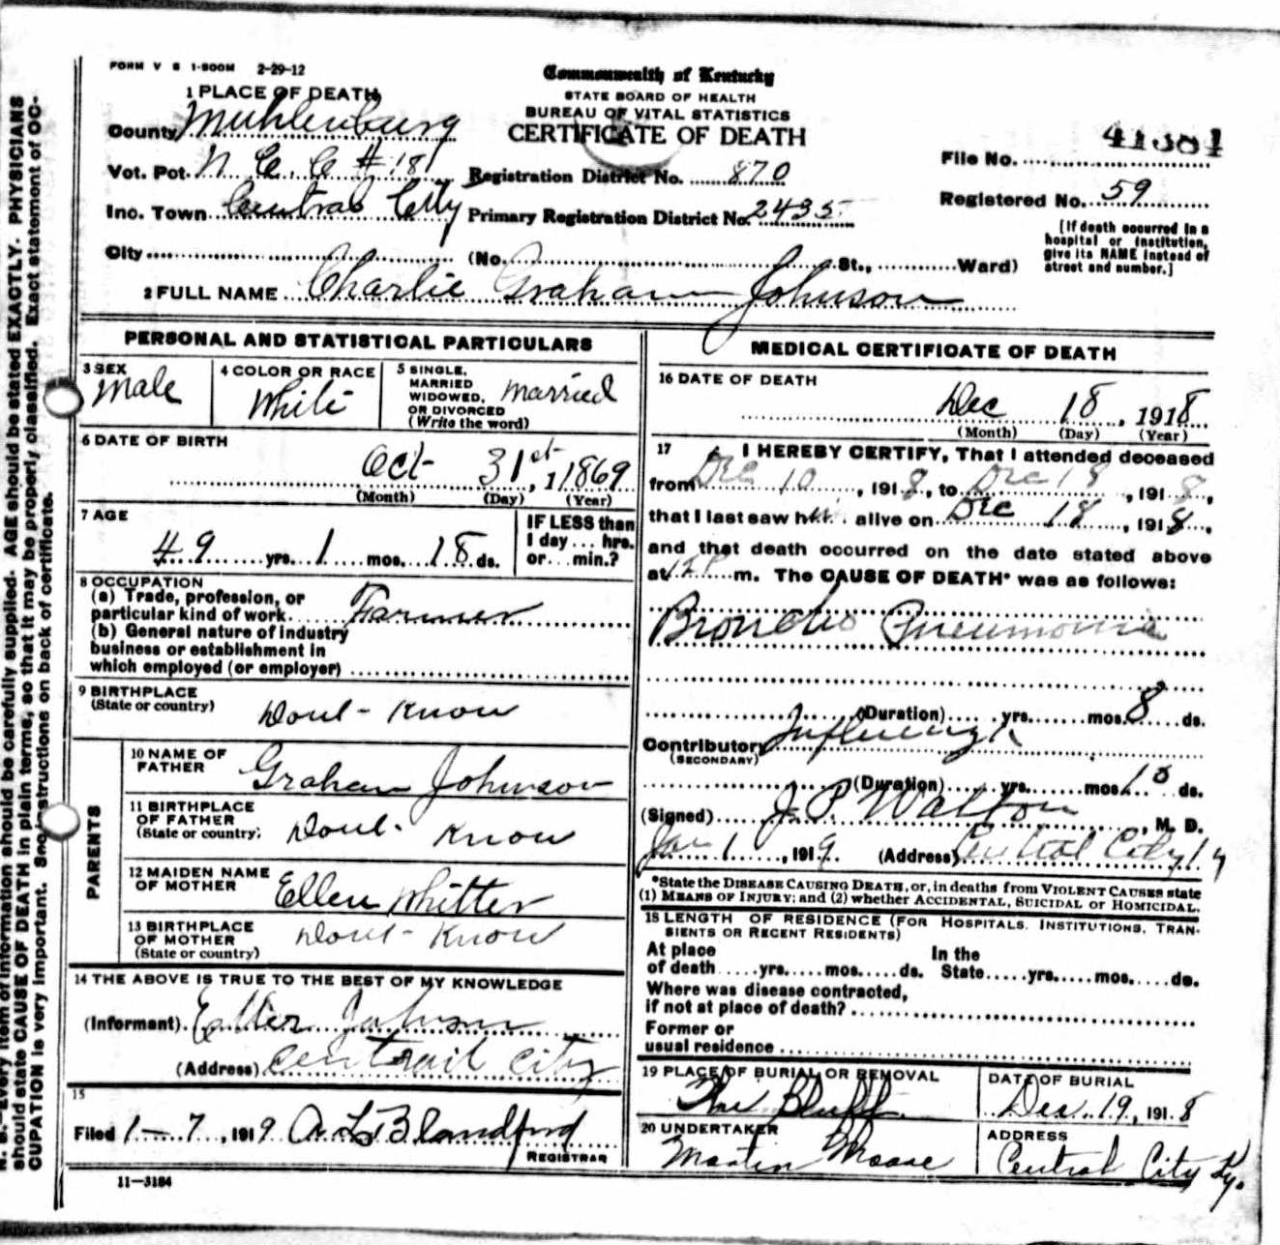 FORM V S 1-500M 2-29-12
Commonwealth of Kentucky
STATE BOARD OF HEALTH
BUREAU OF VITAL STATISTICS
CERTIFICATE OF DEATH
1 PLACE OF DEATH
County Muhlenburg
Vot. Pct. N C. C # 18
Inc. Town Central City
City
Registration District No. 870
Primary Registration District No. 2435
(No. St., Ward)
File No. 41381
Registered No. 59
[If death occurred in a
hospital or institution,
give its NAME instead of
street and number.]
2 FULL NAME Charlie Graham Johnson
PERSONAL AND STATISTICAL PARTICULARS
3 SEX
Male
4 COLOR OR RACE
White
5 SINGLE,
MARRIED
WIDOWED,
OR DIVORCED
(Write the word)
Married
6 DATE OF BIRTH
Oct 31st, 1 1869
(Month) (Day) (Year)
7 AGE
49 yrs. 1 mos. 18 ds.
IF LESS than
1 day... hrs.
or... min.?
8 OCCUPATION
(a) Trade, profession, or
particular kind of work Farmer
(b) General nature of industry
business or establishment in
which employed (or employer)
9 BIRTHPLACE
(State or country)
Dont-Know
PARENTS
10 NAME OF
FATHER
Graham Johnson
11 BIRTHPLACE
OF FATHER
(State or country)
Dont- Know
12 MAIDEN NAME
OF MOTHER
Ellen Whitter
13 BIRTHPLACE
OF MOTHER
(State or country)
Dont-Know
14 THE ABOVE IS TRUE TO THE BEST OF MY KNOWLEDGE
(Informant) Johnson
(Address) Centrail City
15
Filed 1-7, 1919 A L Blandford
REGISTRAR
11-3184
MEDICAL CERTIFICATE OF DEATH
16 DATE OF DEATH
Dec 18, 1918
(Month) (Day) (Year)
17 I HEREBY CERTIFY, That I attended deceased
from Dec 10, 1918, to Dec 18, 1918,
that I last saw him alive on Dec 18, 1918,
and that death occurred on the date stated above
at 12 P m. The CAUSE OF DEATH* was as follows:
Broncho Pneumonia
(Duration) yrs. mos. 8 ds.
Contributory
(SECONDARY)
Influenza
(Duration) yrs. mos. 10 ds.
(Signed) J. P. Walton, M. D.
Jan 1, 1919. (Address) Central City Ky
*State the DISEASE CAUSING DEATH, or, in deaths from VIOLENT CAUSES state
(1) MEANS OF INJURY; and (2) whether ACCIDENTAL, SUICIDAL or HOMICIDAL.
18 LENGTH OF RESIDENCE (FOR HOSPITALS, INSTITUTIONS, TRAN-
SIENTS OR RECENT RESIDENTS)
At place
of death yrs. mos. ds.
In the
State yrs. mos. ds.
Where was disease contracted,
if not at place of death?
Former or
usual residence
19 PLACE OF BURIAL OR REMOVAL
Bluff
DATE OF BURIAL
Dec. 19, 1918
20 UNDERTAKER
Martin Moore
ADDRESS
Central City Ky.
N. B.-Every item of information should be carefully supplied. AGE should be stated EXACTLY. PHYSICIANS
should state CAUSE OF DEATH in plain terms, so that it may be properly classified. Exact statement of OC-
CUPATION is very important. See instructions on back of certificate.